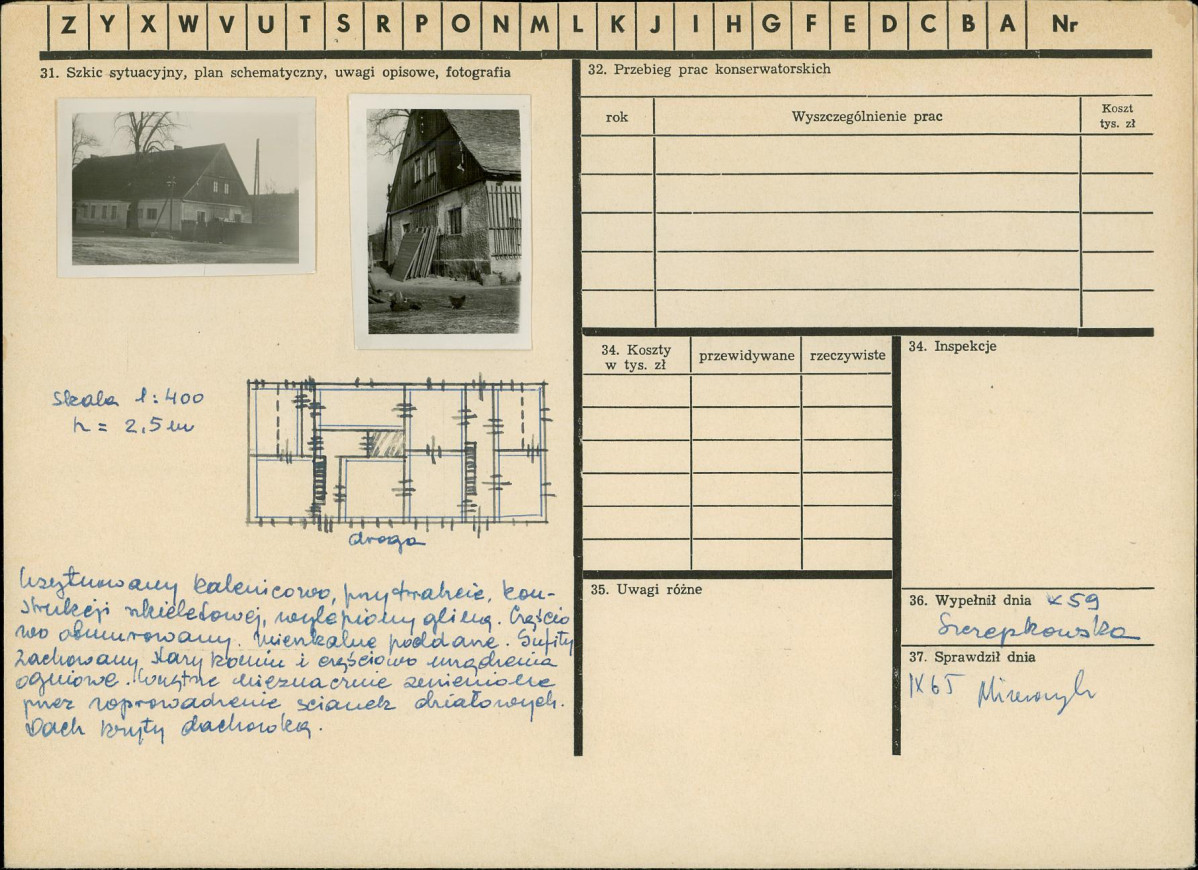 Z Y X W V U T S R P O N M L K J I H G F E D C B A Nr
31. Szkic sytuacyjny, plan schematyczny, uwagi opisowe, fotografia
Skala 1:400
h = 2,5 m
droga
Usytuowany kalenicowo, przy trakcie, kon-
strukcji szkieletowej, wylepiony gliną. Częścio
wo obmurowany. Mieszkalne poddasze. Sufity
Zachowany stary komin i częściowo urządzenia
ogniowe. Wnętrze nieznacznie zmienione
przez zaprowadzenie ścianek działowych.
Dach kryty dachówką.
32. Przebieg prac konserwatorskich
rok
Wyszczególnienie prac
Koszt
tys. zł
34. Koszty
w tys. zł
przewidywane
rzeczywiste
34. Inspekcje
35. Uwagi różne
36. Wypełnił dnia X 59
Szczepkowska
37. Sprawdził dnia